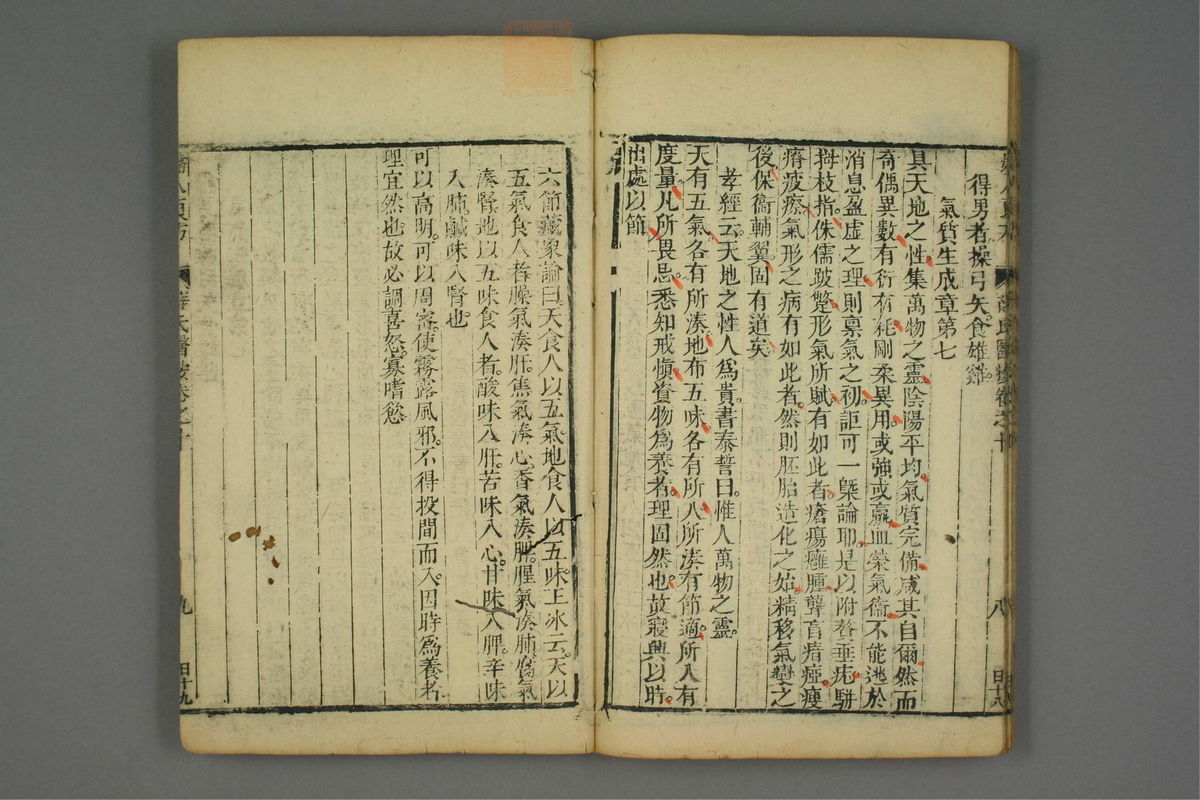 得男者操弓矢食雄雞
氣質生成章第七
具天地之性集萬物之靈陰陽平均氣質完備咸其自爾然而
奇偶異數有衍有耗剛柔異用或強或羸血榮氣衞不能逃於
消息盈虛之理則稟氣之初詎可一槩論耶是以附贅垂疣駢
拇枝指侏儒跛蹩形氣所賦有如此者瘡瘍癰腫聾盲瘖瘂瘦
瘠疲瘵氣形之病有如此者然則胚胎造化之始精移氣變之
後保衞輔翼固有道矣
孝經云天地之性人爲貴書泰誓曰惟人萬物之靈
天有五氣各有所湊地布五味各有所入所湊有節適所入有
度量凡所畏忌悉知戒愼資物爲養者理固然也故寢興以時
出處以節
八
日十八
六節藏象論曰天食人以五氣地食人以五味王冰云天以
五氣食人者臊氣湊肝焦氣湊心香氣湊脾腥氣湊肺腐氣
湊腎地以五味食人者酸味入肝苦味入心甘味入脾辛味
入肺鹹味入腎也
可以高明可以周密使霧露風邪不得投間而入因時爲養者
理宜然也故必調喜怒寡嗜慾
薛氏醫按卷之十
九
日十九